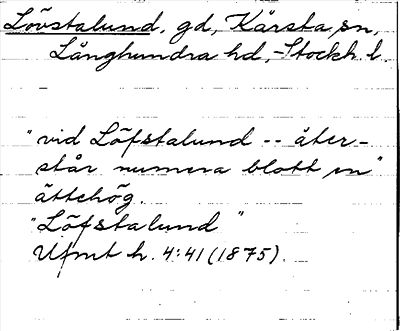 Lövstalund, gd, Kårsta sn,
Långhundra hd, Stockh. l.
"vid Löfstalund -- åter-
står numera blott en"
ättehög.
"Löfstalund"
Ufmt h. 4:41 (1875).